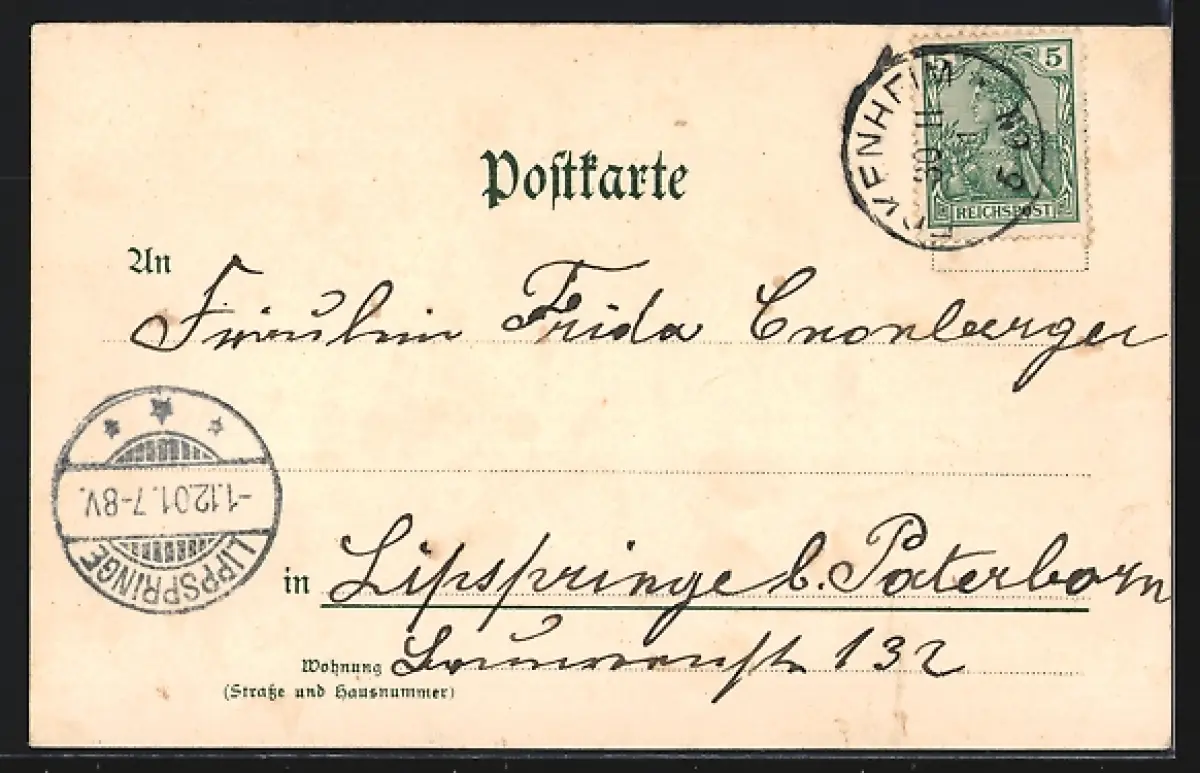 5 5
REICHSPOST
30 11
Postkarte
An
Fräulein Frida Cronberger
-1.12.01.7-8V.
LIPPSPRINGE
in Lipspringe b. Paterborn
Wohnung 132
(Straße und Hausnummer)